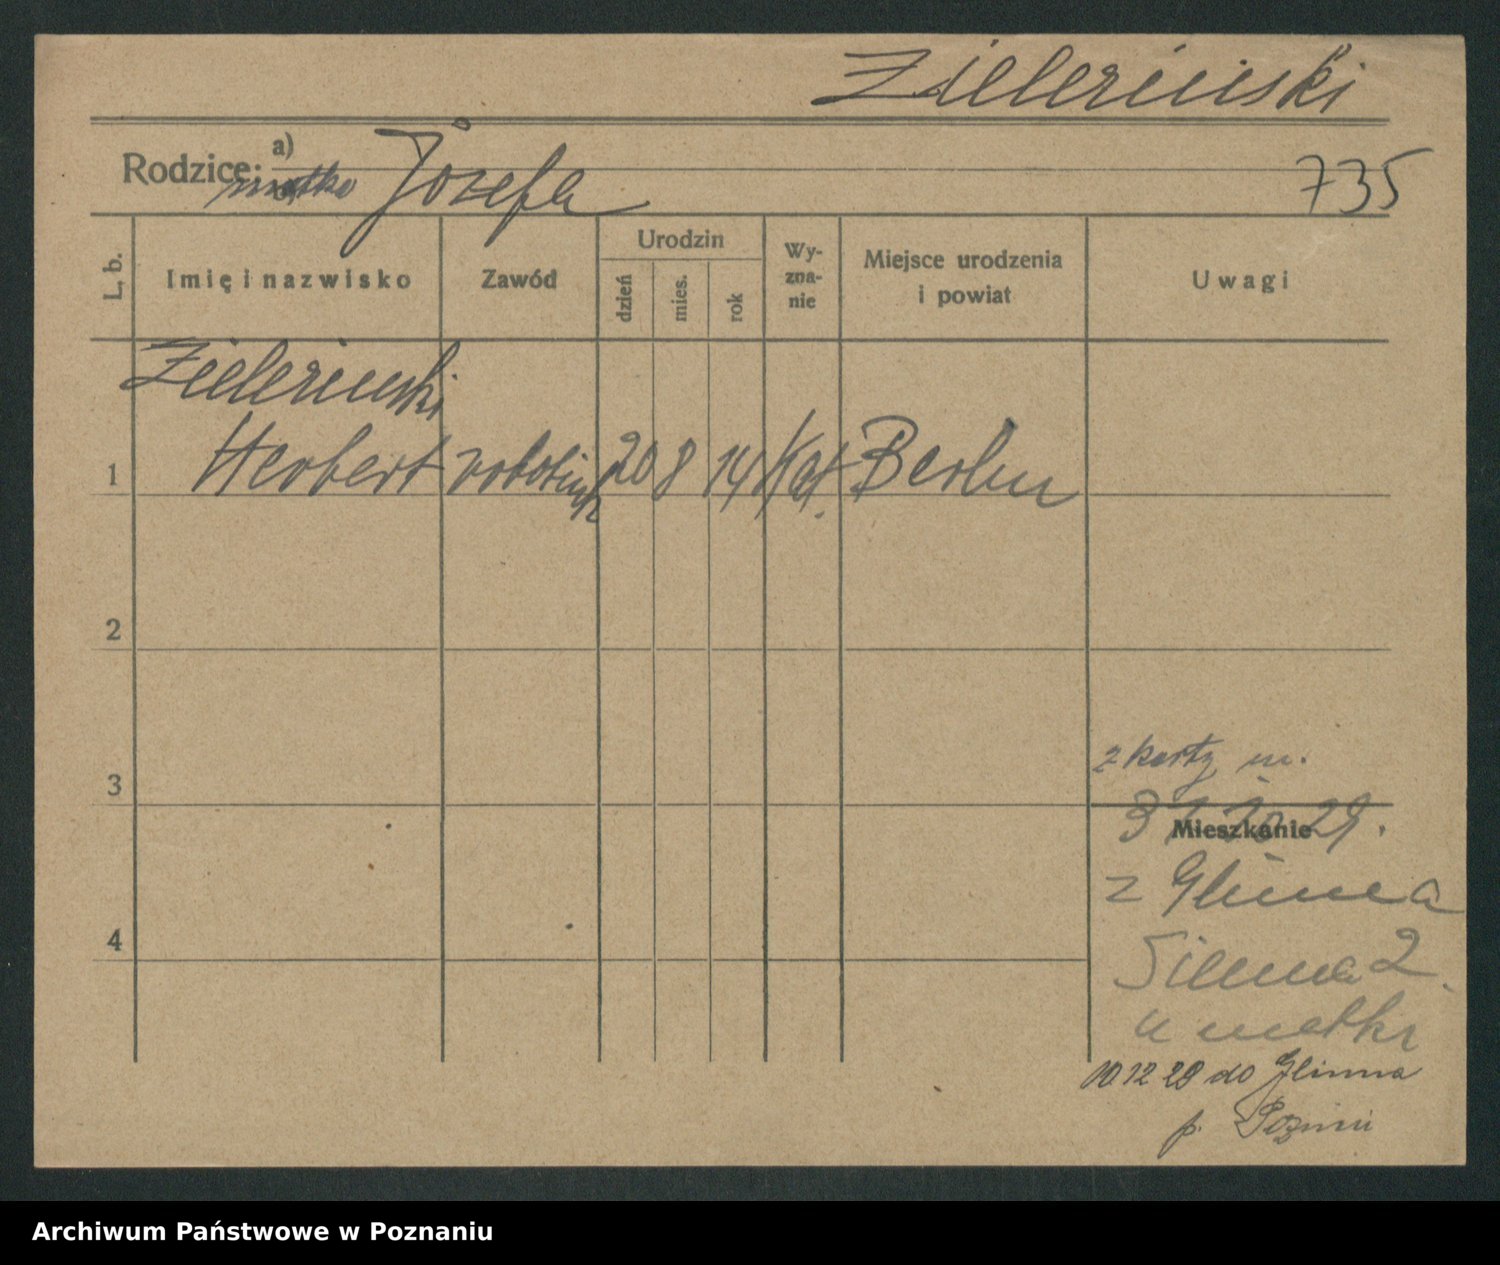 Zieleriński
Rodzice: a)
matka Józefa
735
L. b.
Imię i nazwisko
Zawód
Urodzin
dzień
mies.
rok
Wy-
zna-
nie
Miejsce urodzenia
i powiat
Uwagi
Zieleriński
1 Herbert robotnik 20 8 14 Kat. Berlin
2
3
4
z karty m.
Mieszkanie
31 10 29.
z Glinna
2
u matki
10 12 29 do Glinna
p.
Archiwum Państwowe w Poznaniu